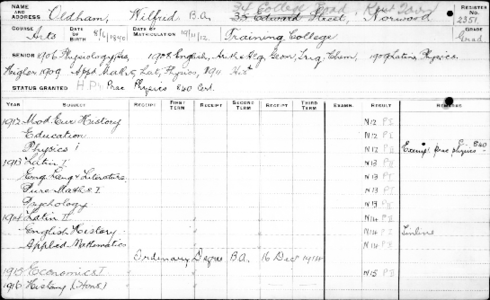 NAME Oldham, Wilfred B.A. ADDRESS 34 College Road Kent Town REGISTER No.
35 Edward Street, Norwood 2351
COURSE Arts DATE OF BIRTH DATE OF MATRICULATION Training College Grad
SENIOR 1906 Physiography, 1907 English, Geom, Trig, Chem, 1908 Latin Physics
Higher 1909 Appd Maths, Lat, Physics,
STATUS GRANTED H.P. Prac Physics Cert.
YEAR SUBJECT RECEIPT FIRST TERM RECEIPT SECOND TERM RECEIPT THIRD TERM EXAMN. RESULT REMARKS
1912 Mod Eur History N12 PS
Education N12 PS
Physics I N12 PS Exempt Prac Physics
1913 Latin I N13 PS
Eng Lang & Literature N13 PS
Pure Maths I N13 PS
Psychology N13 PS
1914 Latin II N14 PS
English History N14 PS
Applied Mathematics N14 PS
Ordinary Degree B.A. 16 Dec 1914
1915 Economics I N15 PS
1916 History (Hons)